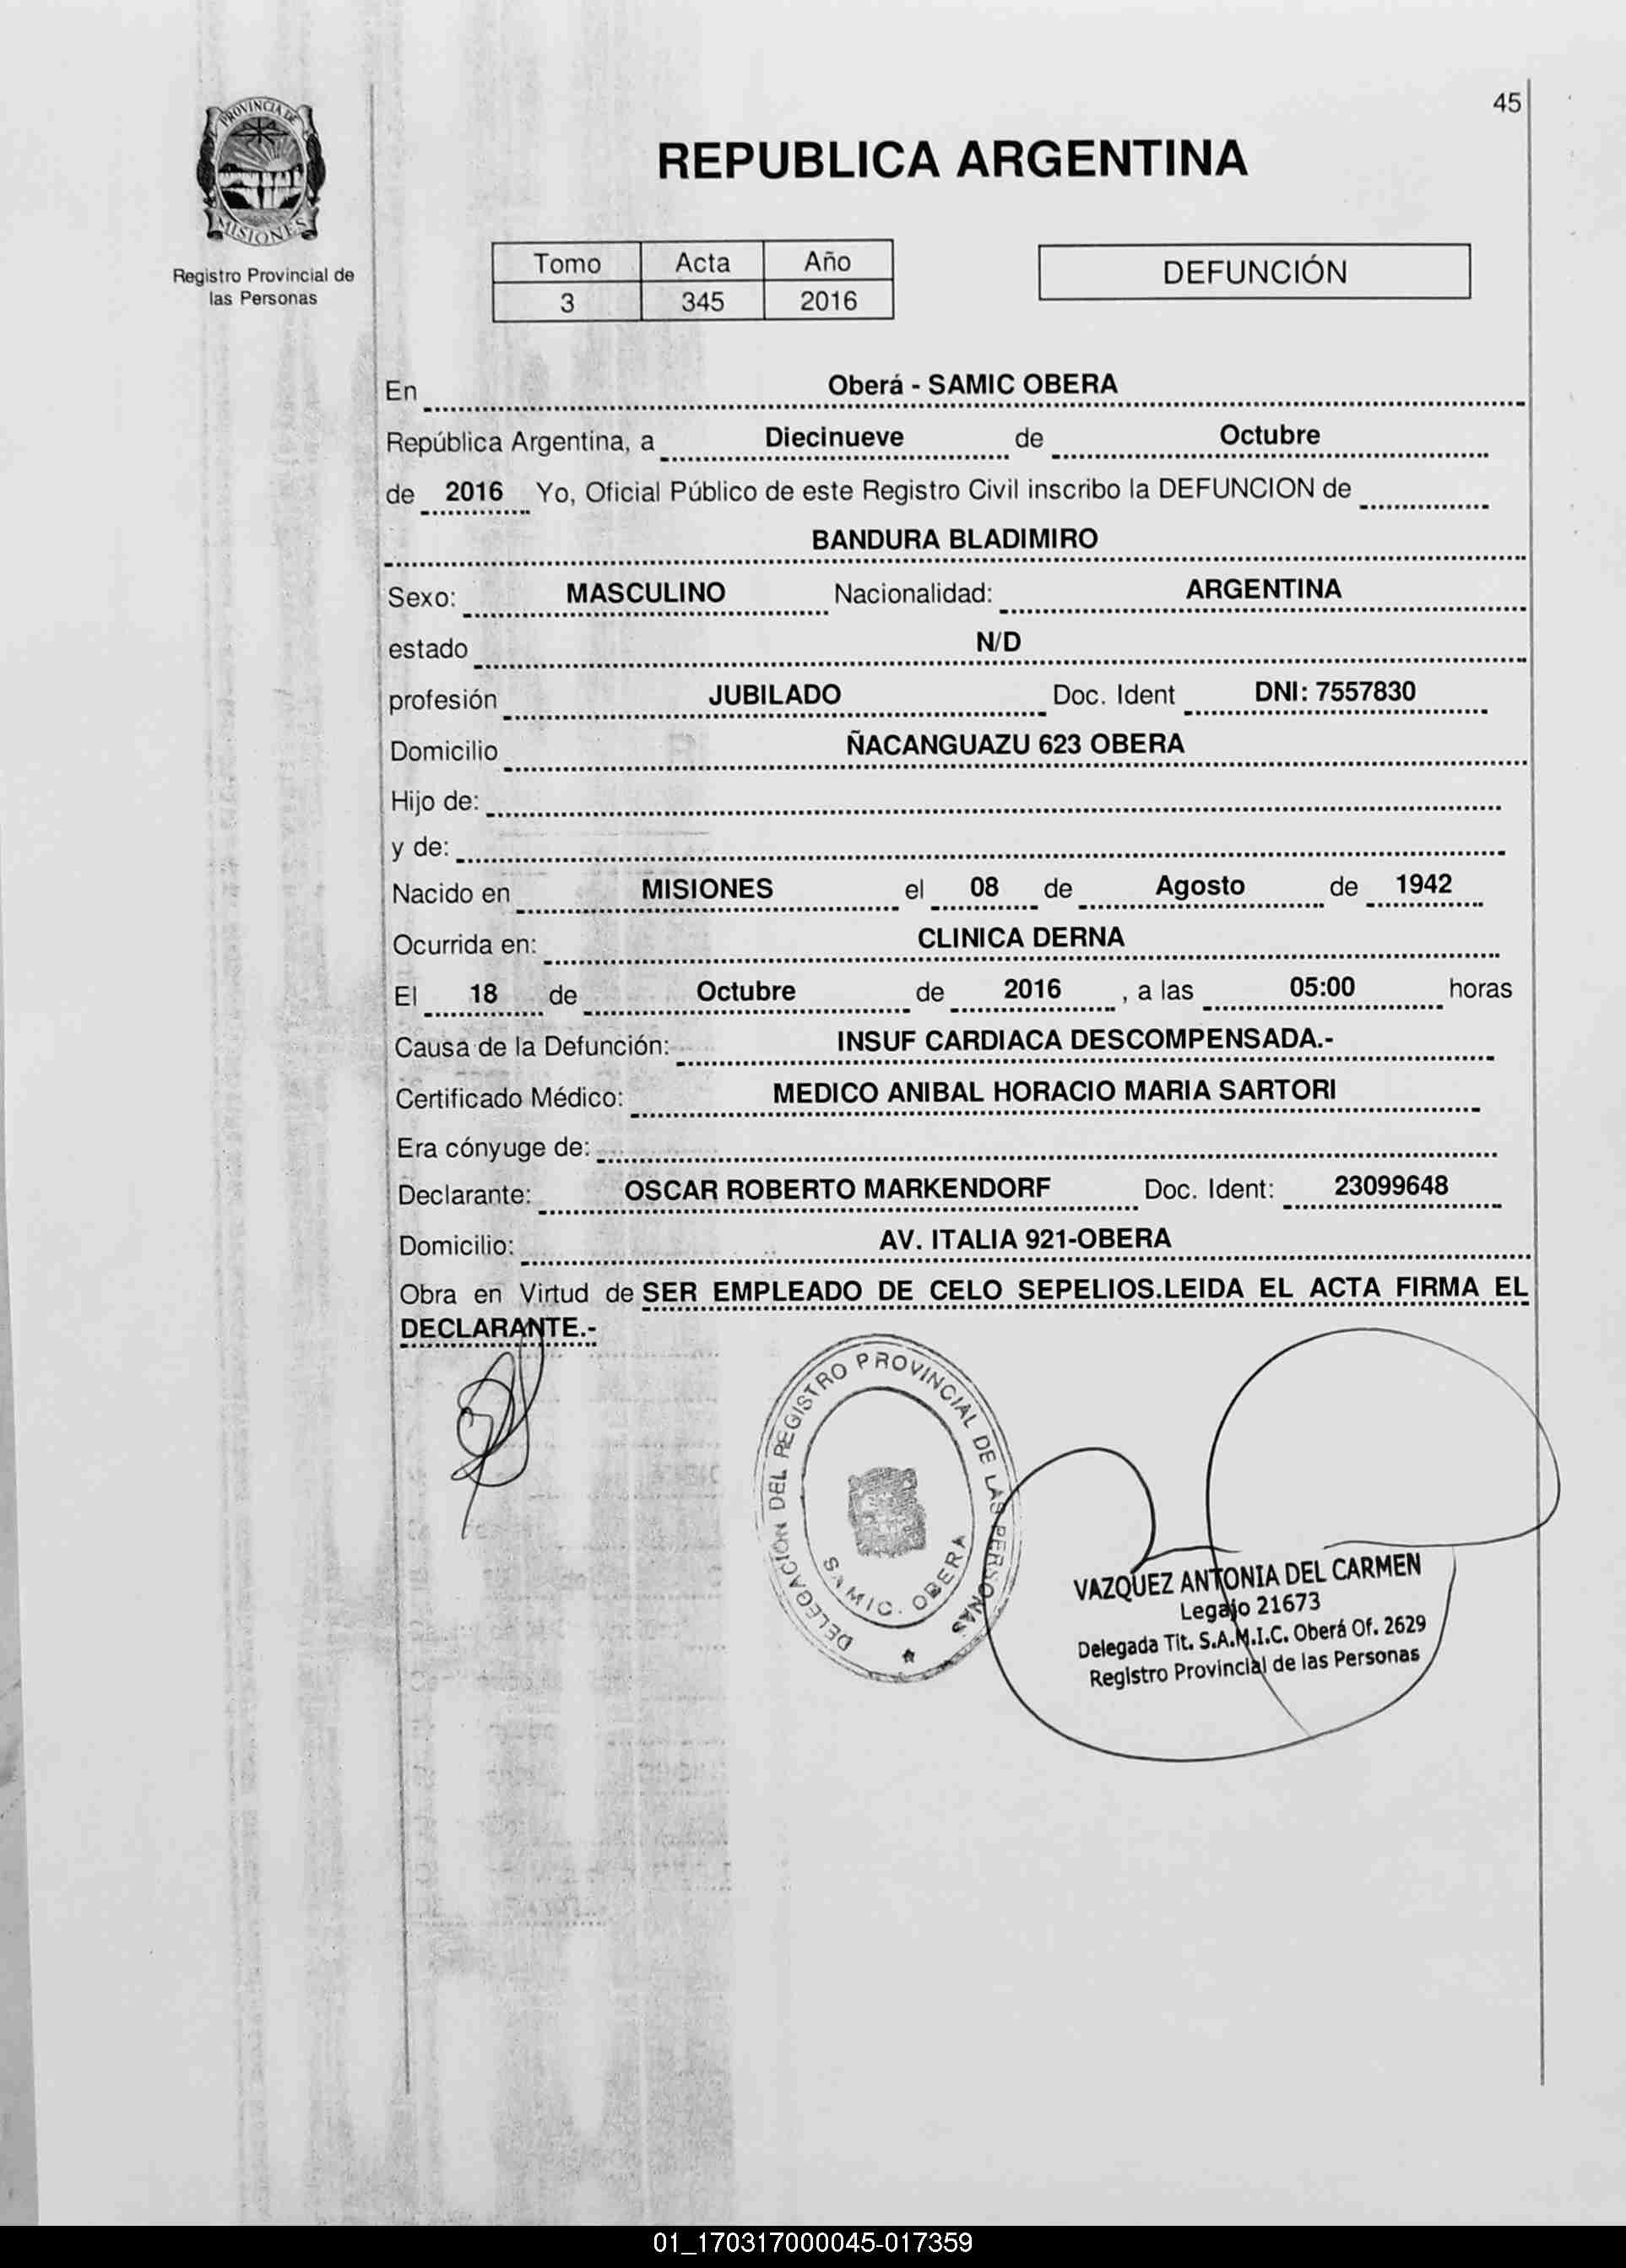 45
PROVINCIA DE
MISIONES
Registro Provincial de
las Personas
REPUBLICA ARGENTINA
Tomo Acta Año
3 345 2016
DEFUNCIÓN
En Oberá - SAMIC OBERA
República Argentina, a Diecinueve de Octubre
de 2016 Yo, Oficial Público de este Registro Civil inscribo la DEFUNCION de
BANDURA BLADIMIRO
Sexo: MASCULINO Nacionalidad: ARGENTINA
estado N/D
profesión JUBILADO Doc. Ident DNI: 7557830
Domicilio ÑACANGUAZU 623 OBERA
Hijo de:
y de:
Nacido en MISIONES el 08 de Agosto de 1942
Ocurrida en: CLINICA DERNA
El 18 de Octubre de 2016 , a las 05:00 horas
Causa de la Defunción: INSUF CARDIACA DESCOMPENSADA.-
Certificado Médico: MEDICO ANIBAL HORACIO MARIA SARTORI
Era cónyuge de:
Declarante: OSCAR ROBERTO MARKENDORF Doc. Ident: 23099648
Domicilio: AV. ITALIA 921-OBERA
Obra en Virtud de SER EMPLEADO DE CELO SEPELIOS.LEIDA EL ACTA FIRMA EL
DECLARANTE.-
DELEGACION DEL REGISTRO PROVINCIAL DE LAS PERSONAS
SAMIC. OBERA
VAZQUEZ ANTONIA DEL CARMEN
Legajo 21673
Delegada Tit. S.A.M.I.C. Oberá Of. 2629
Registro Provincial de las Personas
01_170317000045-017359